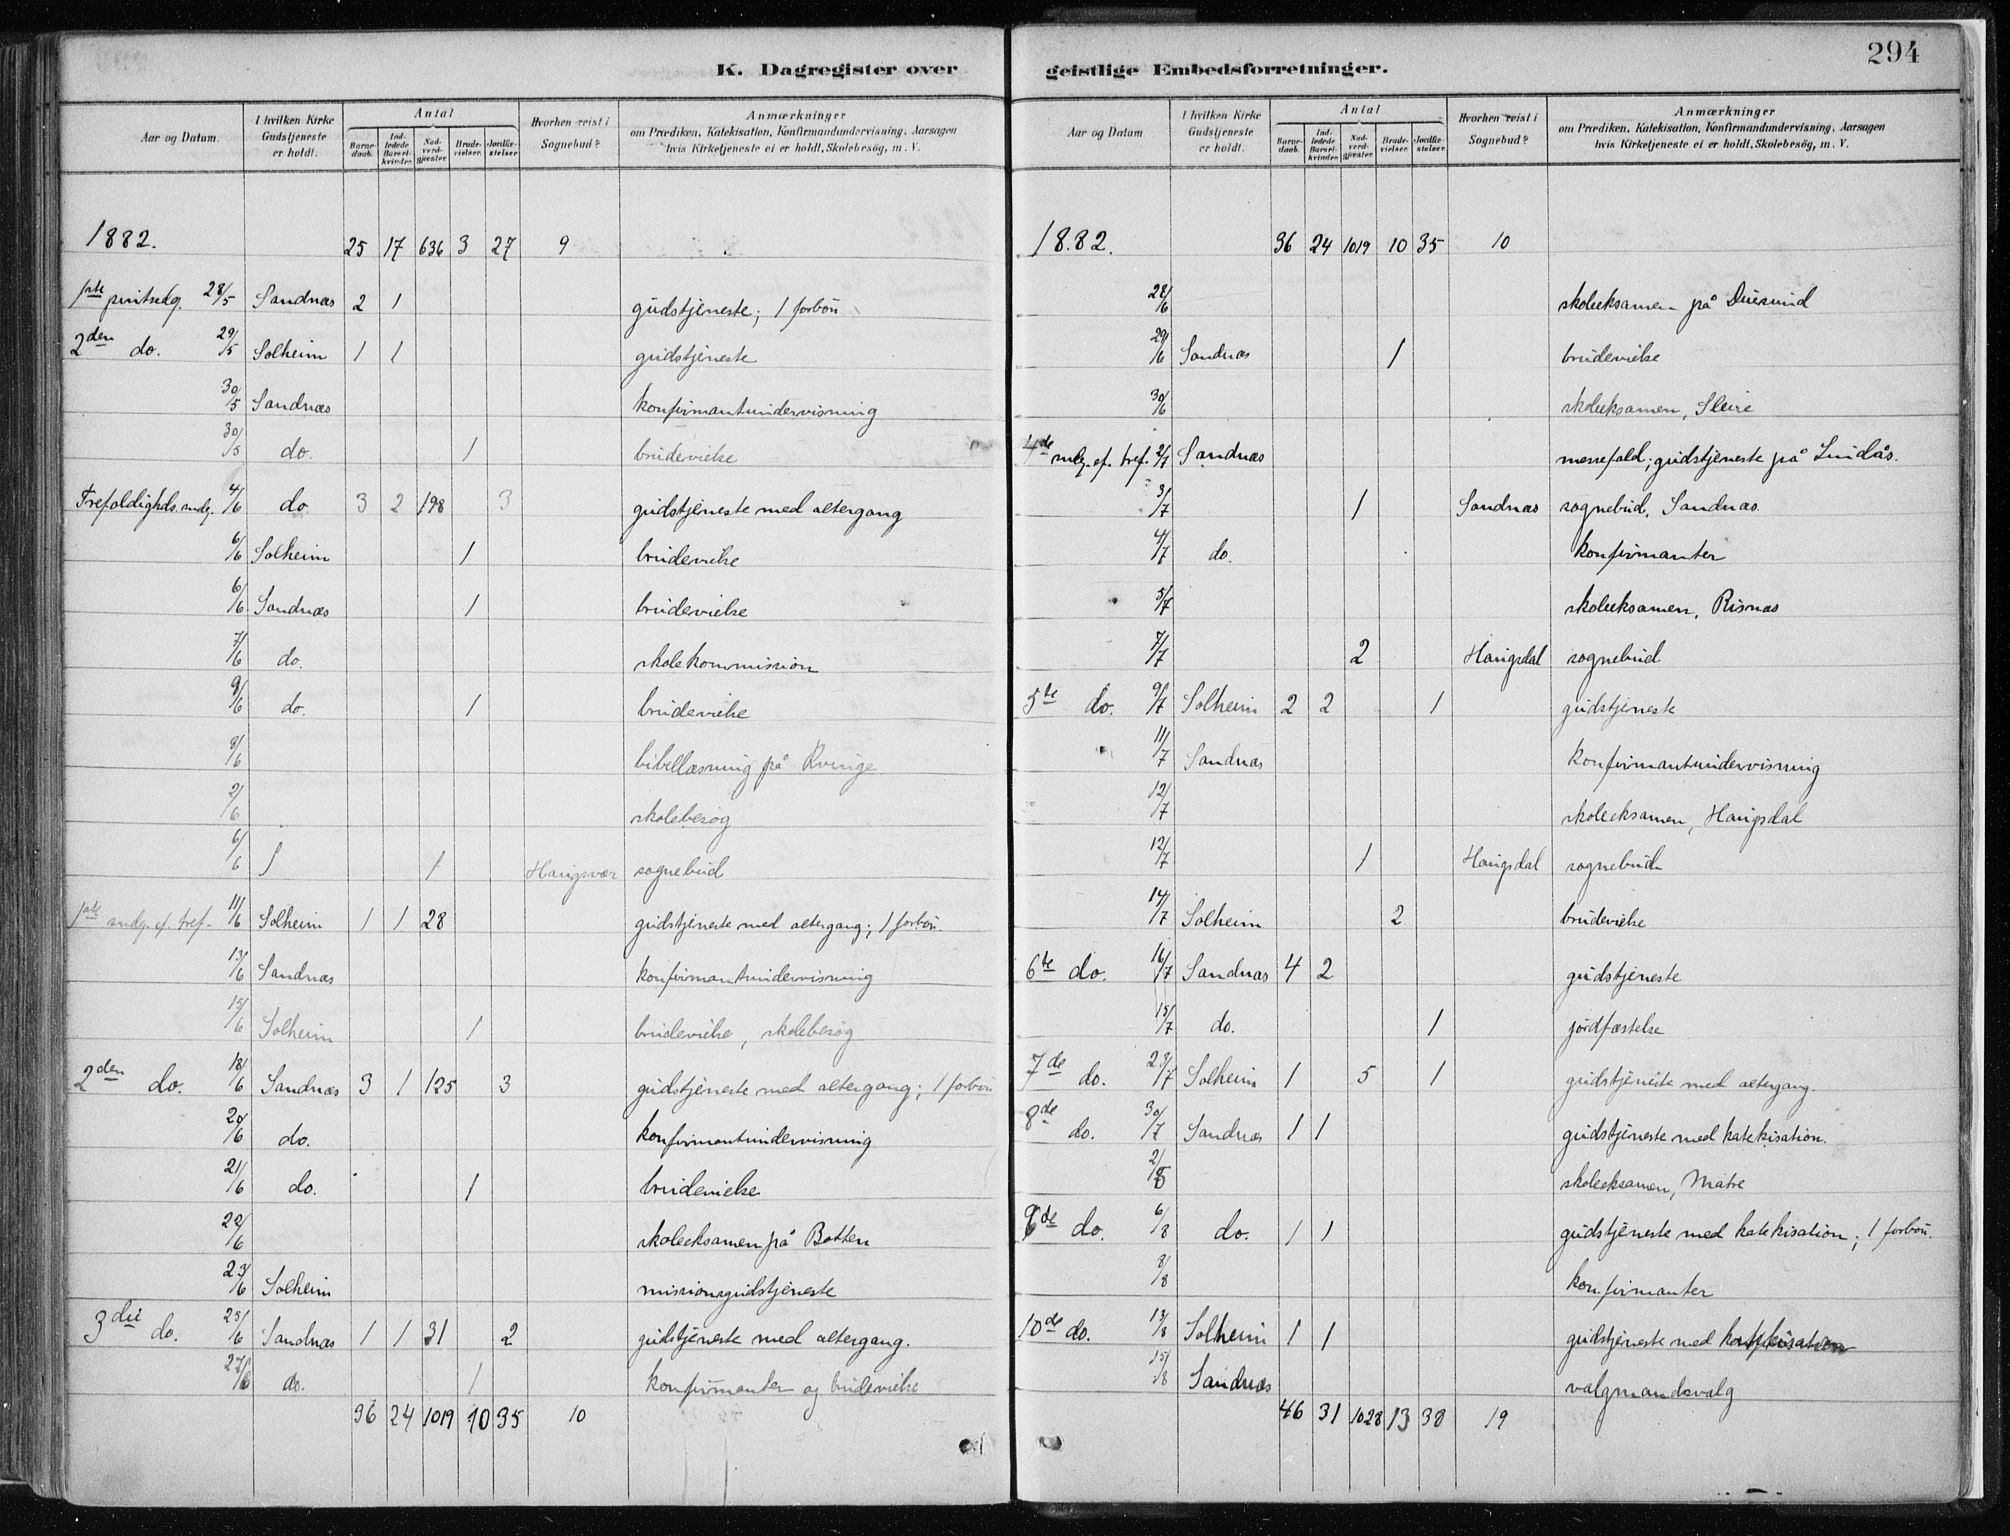 294
K. Dagregister over geistlige Embedsforretninger.
Aar og Datum.
I hvilken Kirke Gudstjeneste er holdt.
Antal
Barnedaab.
Indledede Barselkvinder.
Nadverdgjester.
Brudevielser.
Jordfæstelser.
Hvorhen reist i Sognebud?
Anmærkninger
om Prædiken, Katekisation, Konfirmandundervisning, Aarsagen
hvis Kirketjeneste ei er holdt, Skolebesög, m. V.
1882. 25 17 636 3 27 9
1ste pintsedg. 28/5 Sandnæs 2 1 gudstjeneste; 1 forbön
2den do. 29/5 Solheim 1 1 gudstjeneste
30/5 Sandnæs konfirmantundervisning
30/5 do. 1 brudevielse
Trefoldighds. sndg. 4/6 do. 3 2 198 3 gudstjeneste med altergang
6/6 Solheim 1 brudevielse
6/6 Sandnæs 1 brudevielse
7/6 do. skolekommission
9/6 do. 1 brudevielse
8/6 bibellæsning på Kvinge
2/6 skolebesög
6/6 1 Haugsvær sognebud
1ste sndg. ef. tref. 11/6 Solheim 1 1 28 gudstjeneste med altergang; 1 forbön.
13/6 Sandnæs konfirmantundervisning
15/6 Solheim 1 brudevielse, skolebesög
2den do. 18/6 Sandnæs 3 1 125 3 gudstjeneste med altergang; 1 forbön
20/6 do. konfirmantundervisning
21/6 do. 1 brudevielse
22/6 skoleeksamen på Botten
23/6 Solheim missionsgudstjeneste
3die do. 25/6 Sandnæs 1 1 31 2 gudstjeneste med altergang.
27/6 do. 1 konfirmanter og brudevielse
36 24 1019 10 35 10
Aar og Datum
I hvilken Kirke Gudstjeneste er holdt.
Antal
Barnedaab.
Indledede Barselkvinder.
Nadverdgjester.
Brudevielser.
Jordfæstelser.
Hvorhen reist i Sognebud?
Anmærkninger
om Prædiken, Katekisation, Konfirmandundervisning, Aarsagen
hvis Kirketjeneste ei er holdt, Skolebesög, m. V.
18.82. 36 24 1019 10 35 10
28/6 skoleeksamen på Duesund
29/6 Sandnæs 1 brudevielse
30/6 skoleeksamen, Sleire
4de sndg. ef. tref. 2/7 Sandnæs messefald; gudstjeneste på Lindås.
3/7 1 Sandnæs sognebud, Sandnæs
4/7 do. konfirmanter
5/7 skoleeksamen, Risnæs
7/7 2 Haugsdal sognebud
5te do. 9/7 Solheim 2 2 1 gudstjeneste
11/7 Sandnæs konfirmantundervisning
12/7 skoleeksamen, Haugsdal
12/7 1 Haugsdal sognebud
14/7 Solheim 2 brudevielse
6te do. 16/7 Sandnæs 4 2 gudstjeneste
15/7 do. 1 jordfæstelse
7de do. 23/7 Solheim 1 5 1 gudstjeneste med altergang.
8de do. 30/7 Sandnæs 1 1 gudstjeneste med katekisation.
2/8 skoleeksamen, Matre
9de do. 6/8 do. 1 1 gudstjeneste med katekisation; 1 forbön.
8/8 konfirmanter
10de do. 13/8 Solheim 1 1 gudstjeneste med katekisation
15/8 Sandnæs valgmandsvalg
46 31 1028 13 38 19